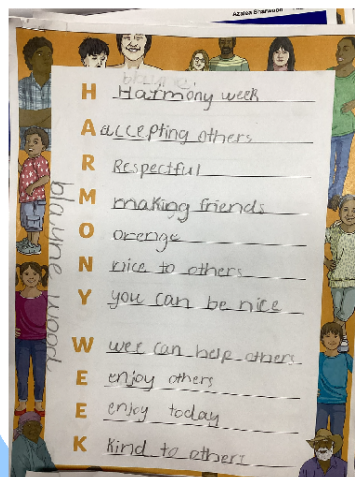 Azalea
blayne
H Harmony week
A accepting others
R Respectful
M making friends
O orenge
N nice to others
Y you can be nice
W wee can help others
E enjoy others
E enjoy today
K Kind to others
blayne wood